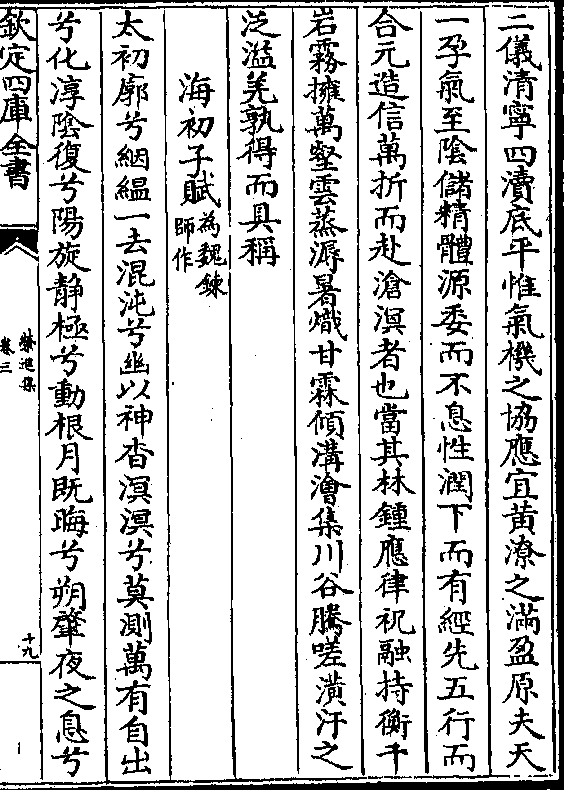 二儀清寧四瀆底平惟氣機之協應宜黄潦之滿盈原夫天
一孕氣至陰儲精體源委而不息性潤下而有經先五行而
合元造信萬折而赴滄溟者也當其林鍾應律祝融持衡千
岩霧擁萬壑雲蒸溽暑熾甘霖傾溝澮集川谷騰嗟潢汙之
泛濫羌孰得而具稱
海初子賦為魏鍊師作
太初廓兮絪緼一去混沌兮幽以神杳溟溟兮莫測萬有自出
兮化淳陰復兮陽旋静極兮動根月既晦兮朔肇夜之息兮
欽定四庫全書
卷三
十九